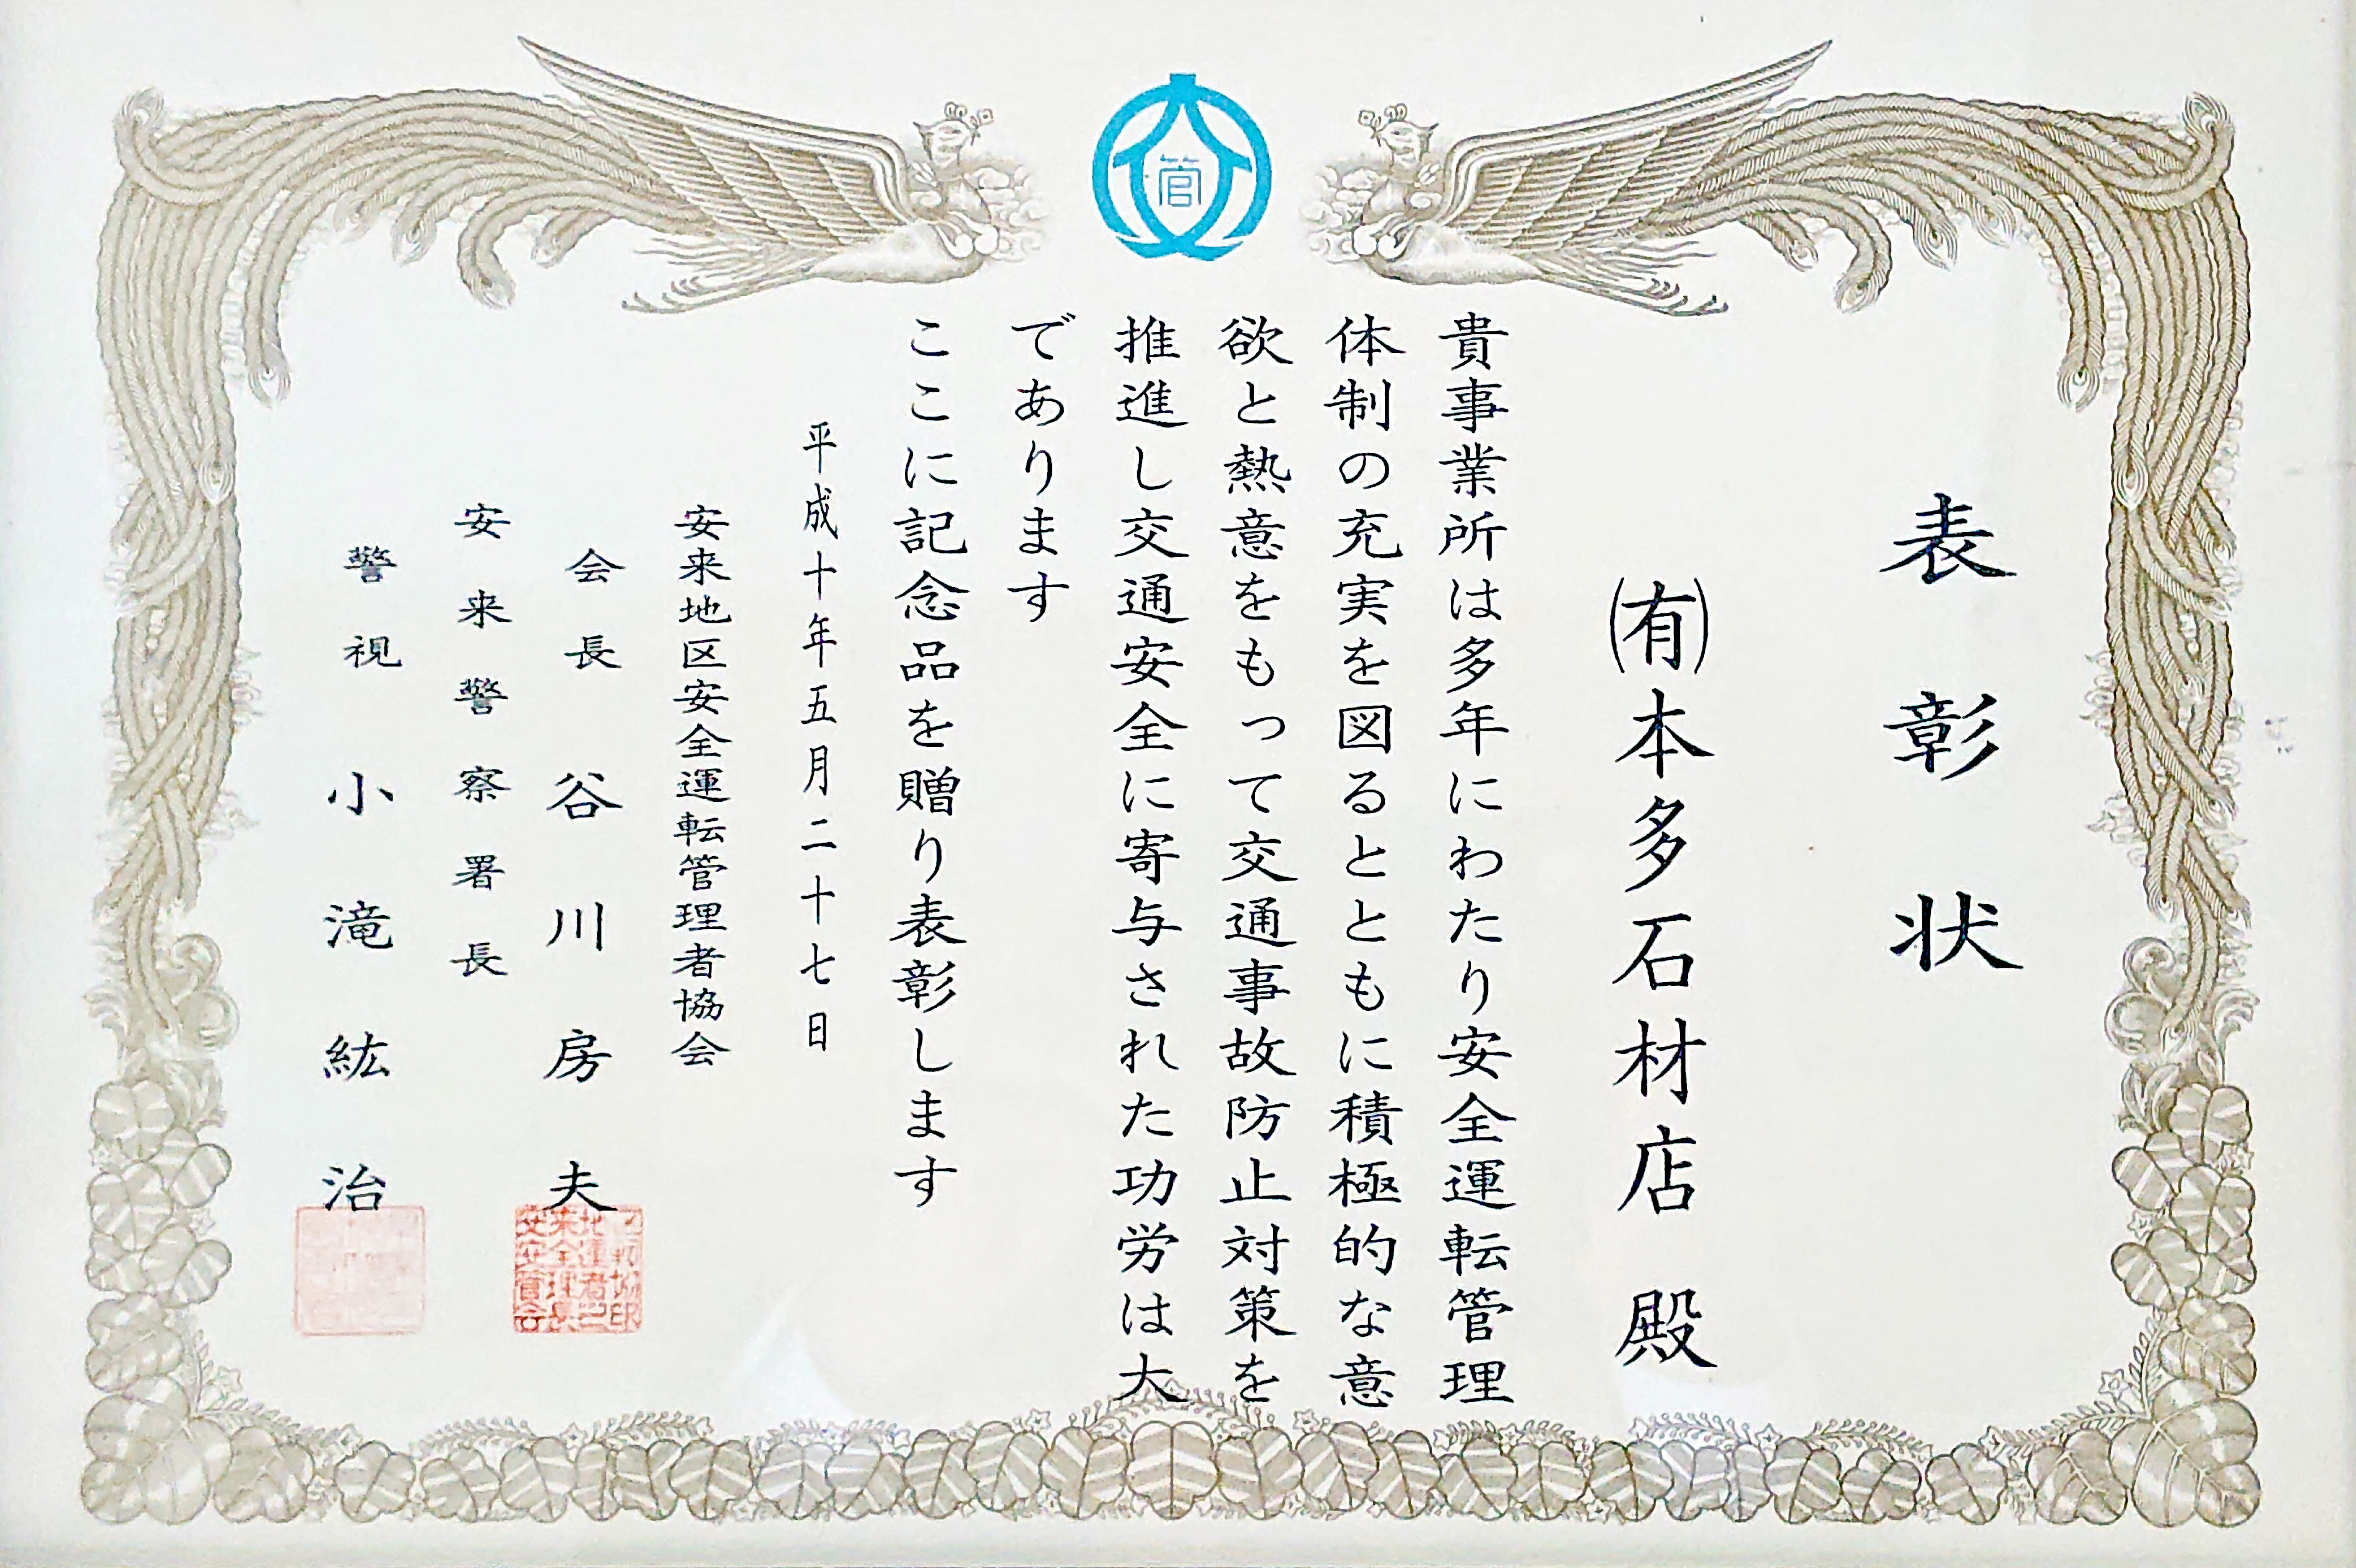 管
表彰状
㈲本多石材店 殿
貴事業所は多年にわたり安全運転管理
体制の充実を図るとともに積極的な意
欲と熱意をもって交通事故防止対策を
推進し交通安全に寄与された功労は大
であります
ここに記念品を贈り表彰します
平成十年五月二十七日
安来地区安全運転管理者協会
会長 谷川房夫
安来警察署長
警視 小滝紘治